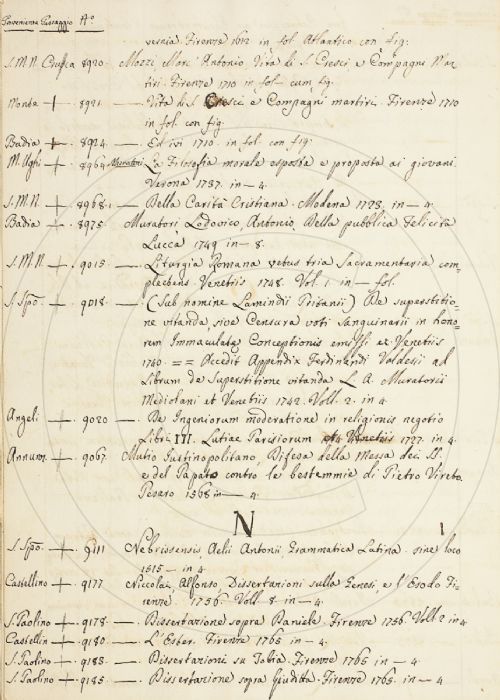 Provenienza Passaggio Nº
versaia Firenze 1612 in fol Atlantico con fig:
S. M. N. Crusca 8920. Mozzi Marc' Antonio Vita di S. Cresci e Compagni Mar
tiri. Firenze 1710 in fol. cum fig:
Monte + 8921 — Vita di S. Cresci e Compagni martiri. Firenze 1710
in fol. con fig.
Badia + 8924. — Ed ivi 1710. in fol. con fig:
M. Ughi + 8964. Muratori La Filosofia morale esposta e proposta ai giovani.
Verona 1737. in - 4.
S. M. N. + 8968. — Della Carità Cristiana. Modena 1723. in - 4.
Badia + 8975 Muratori Lodovico, Antonio, Della pubblica felicità
Lucca 1749 in - 8.
S. M. N. + 9015. — Liturgia Romana vetus tria Sacramentaria com=
plectens. Venetiis 1748. Vol. 1. in - fol.
S. Spo. + 9018. — (Sub nomine Lamindii Pritanii) De superstitio=
ne vitanda, sive Censura voti sanguinarii in hono=
rem Immaculatæ Conceptionis emissi &c. Venetiis
1740. == Accedit Appendix Ferdinandi Valdesii ad
Librum de Superstitione vitanda L. A. Muratorii
Mediolani et Venetiis 1742. Voll. 2. in 4.
Angeli + 9020 — De Ingeniorum moderatione in religionis negotio
Libri III. Lutiae Parisiorum Venetiis 1727. in 4.
Annunz. + 9067. Mutio Justinopolitano, Difesa della Messa dei SS.
e del Papato contro le bestemmie di Pietro Vireto.
Pesaro 1568 in - 4.
N
S. Spo. + 9111 Nebrissensis, Aelii Antonii, Grammatica Latina. sine loco
1515 - in 4.
Castellino + 9177 Niccolai, Alfonso, Dissertazioni sulla Genesi, e l'Esodo Fi=
renze. 1756. Voll. 8. in - 4.
S. Paolino + 9178. — Dissertazione sopra Daniele. Firenze 1756. Voll. 2. in 4
Castellin + 9180. — L'Ester. Firenze 1765 in - 4.
S. Paolino + 9183. — Dissertazioni su Tobia. Firenze 1765 in - 4.
S. Paolino + 9185. — Dissertazione sopra Giuditta. Firenze 1765. in - 4